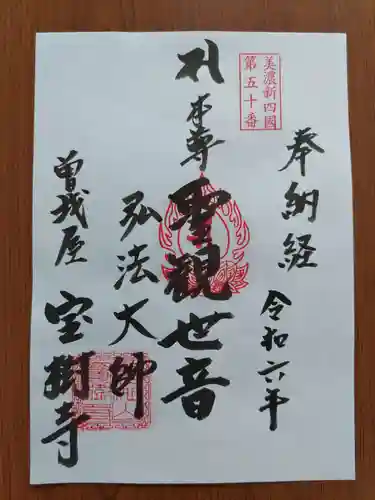 美濃新四國
第五十番
奉納経
令和六年
札本尊
聖観世音
弘法大師
曽我屋
宝樹寺